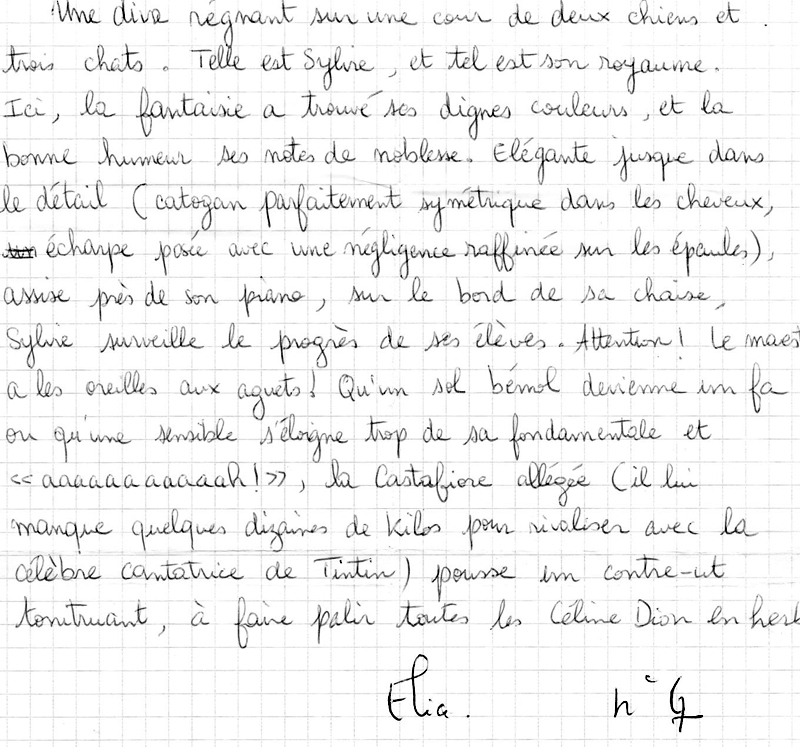 Une diva régnant sur une cour de deux chiens et
trois chats. Telle est Sylvie, et tel est son royaume.
Ici, la fantaisie a trouvé ses dignes couleurs, et la
bonne humeur ses notes de noblesse. Elégante jusque dans
le détail (catogan parfaitement symétrique dans les cheveux,
écharpe posée avec une négligence raffinée sur les épaules),
assise près de son piano, sur le bord de sa chaise,
Sylvie surveille le progrès de ses élèves. Attention! Le maest
a les oreilles aux aguets! Qu'un sol bémol devienne un fa
ou qu'une sensible s'éloigne trop de sa fondamentale et
<<aaaaaaaaaaaah!>>, la Castafiore allégée (il lui
manque quelques dizaines de kilos pour rivaliser avec la
célèbre cantatrice de Tintin) pousse un contre-ut
tonitruant, à faire palir toutes les Céline Dion en herb
Elia. n°